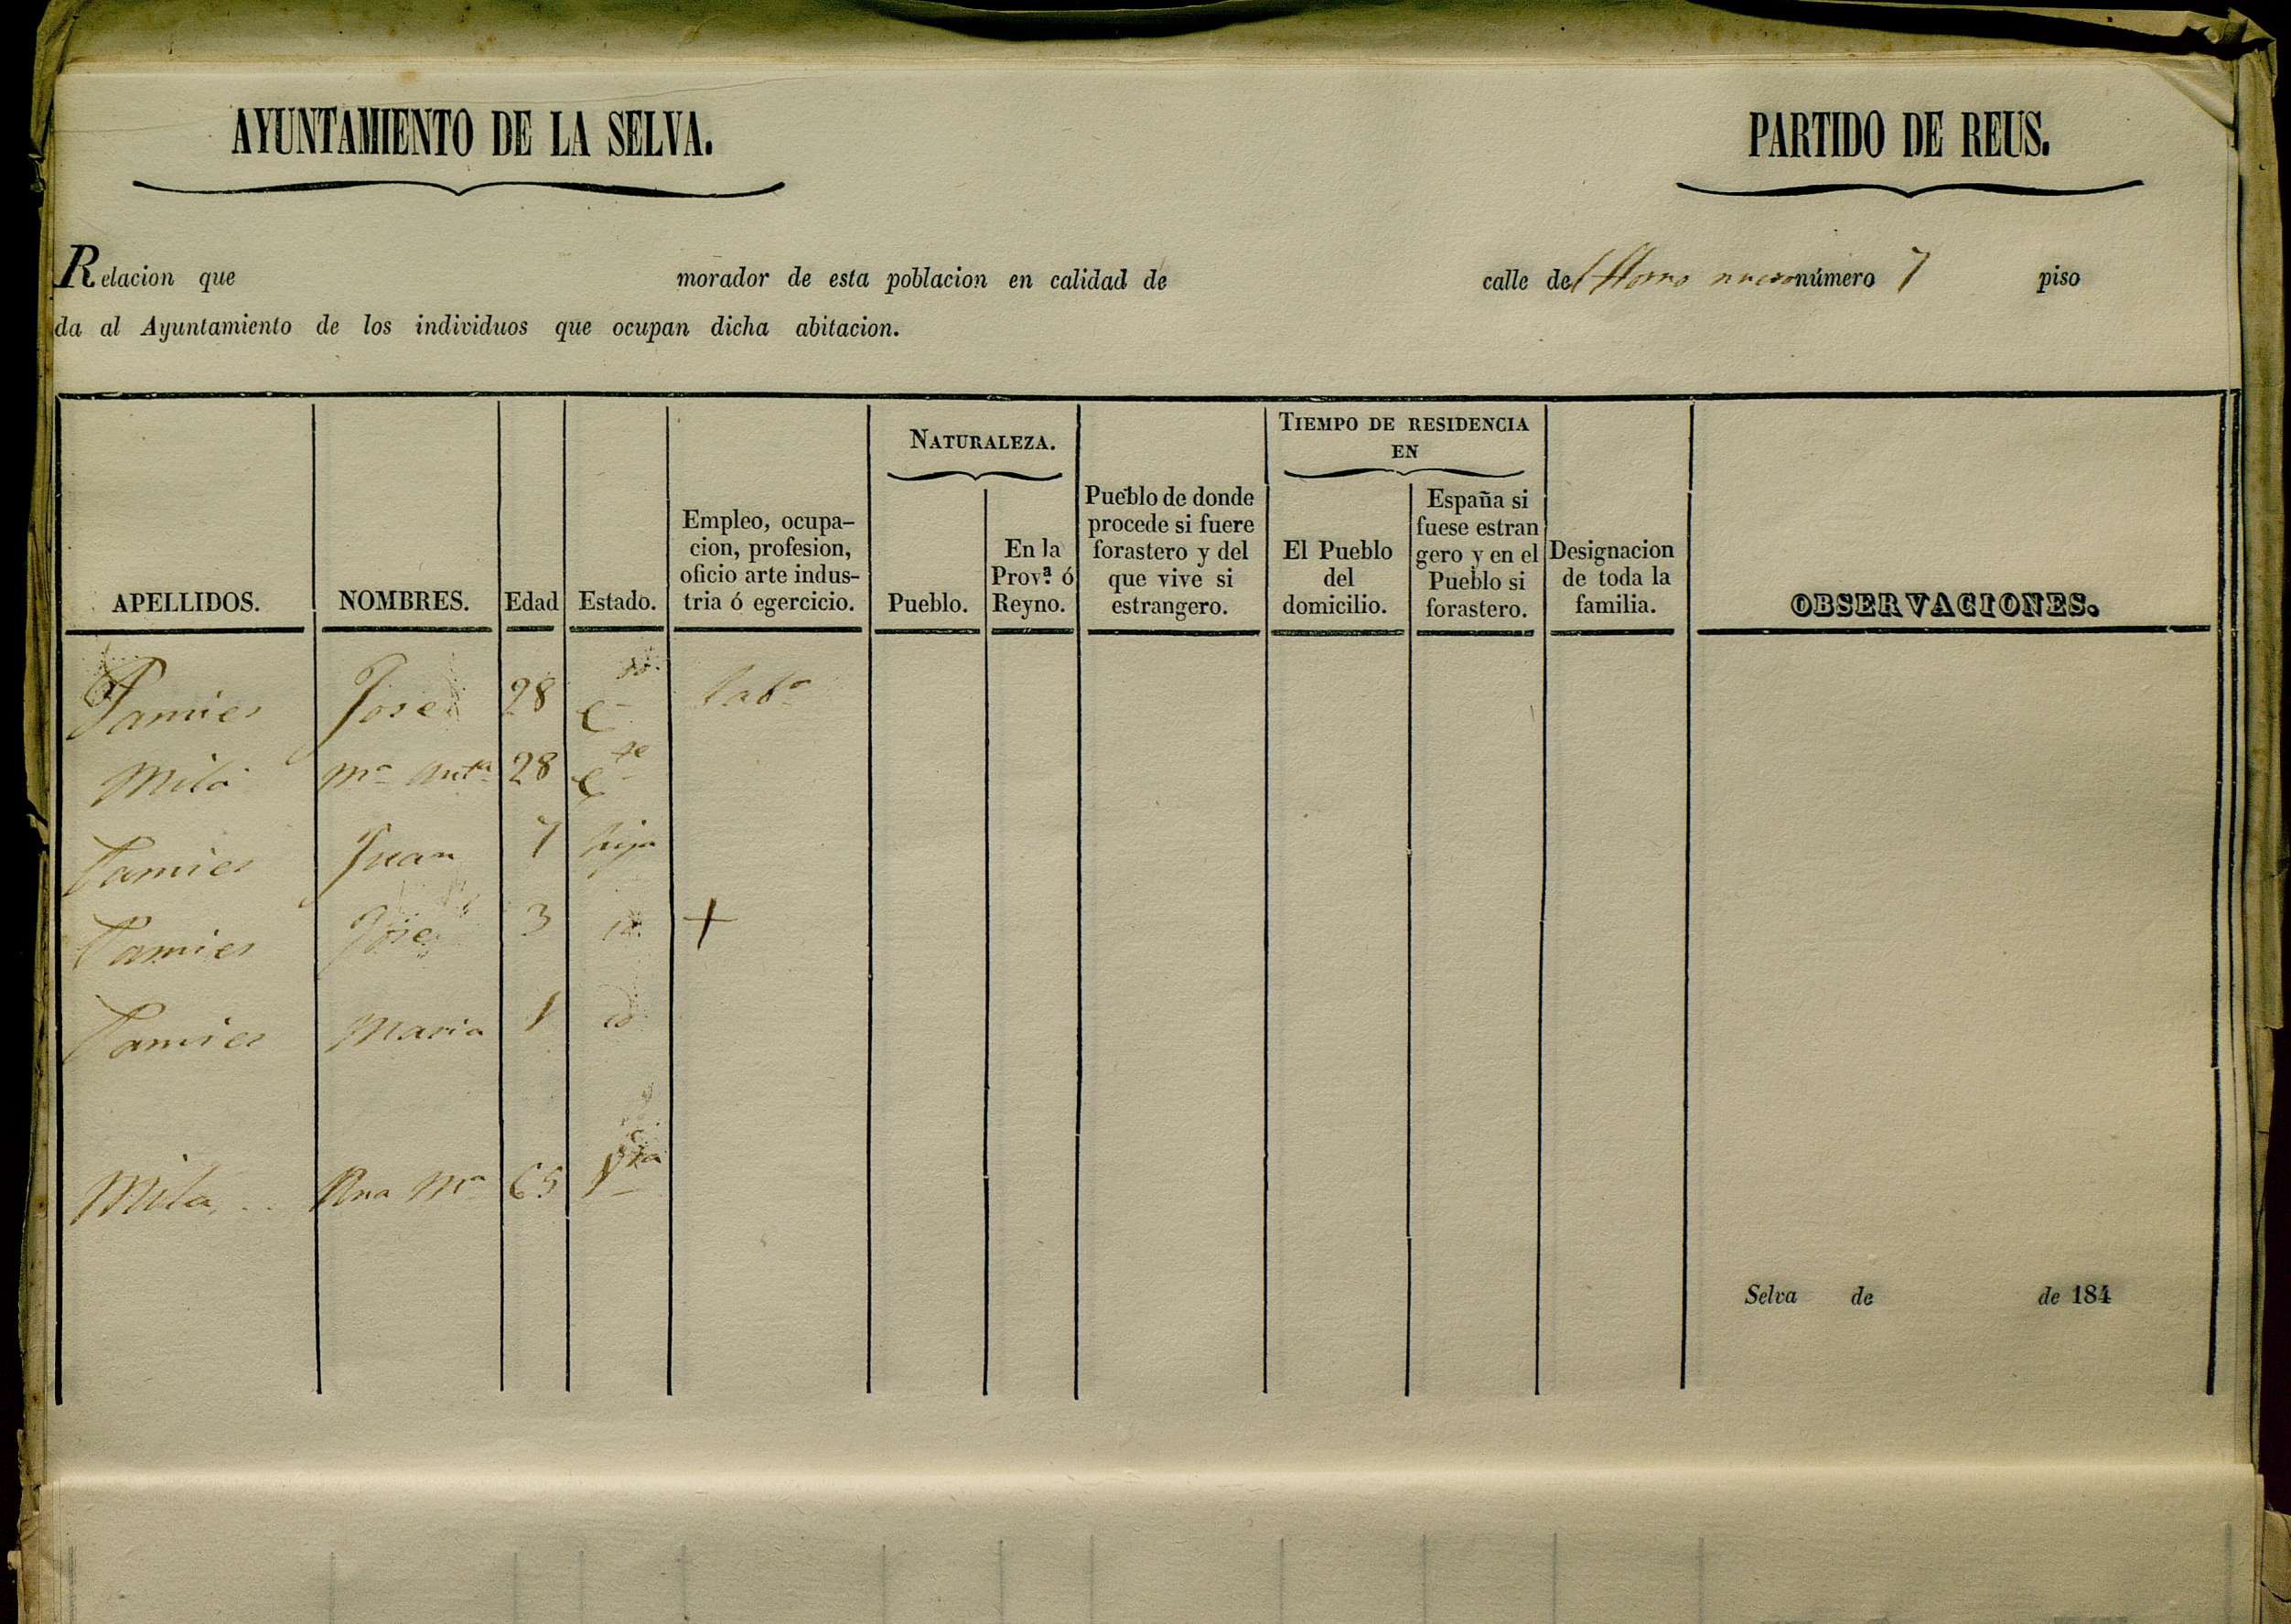 AYUNTAMIENTO DE LA SELVA.
PARTIDO DE REUS.
Relacion que morador de esta poblacion en calidad de calle del Horno nuevo número 7 piso
da al Ayuntamiento de los individuos que ocupan dicha abitacion.
APELLIDOS.
NOMBRES.
Edad
Estado.
Empleo, ocupa-
cion, profesion,
oficio arte indus-
tria ó egercicio.
NATURALEZA.
Pueblo.
En la
Prov.ª ó
Reyno.
Pueblo de donde
procede si fuere
forastero y del
que vive si
estrangero.
TIEMPO DE RESIDENCIA
EN
El Pueblo
del
domicilio.
España si
fuese estran
gero y en el
Pueblo si
forastero.
Designacion
de toda la
familia.
OBSERVACIONES.
Tamies Jose 28 C.do Labr
Mila Mª Antª 28 C.de
Tamies Juan 7 hijo
Tamies Jose 3 id. +
Tamies Maria 1 id
Mila Ana Mª 65 Vda
Selva de de 184